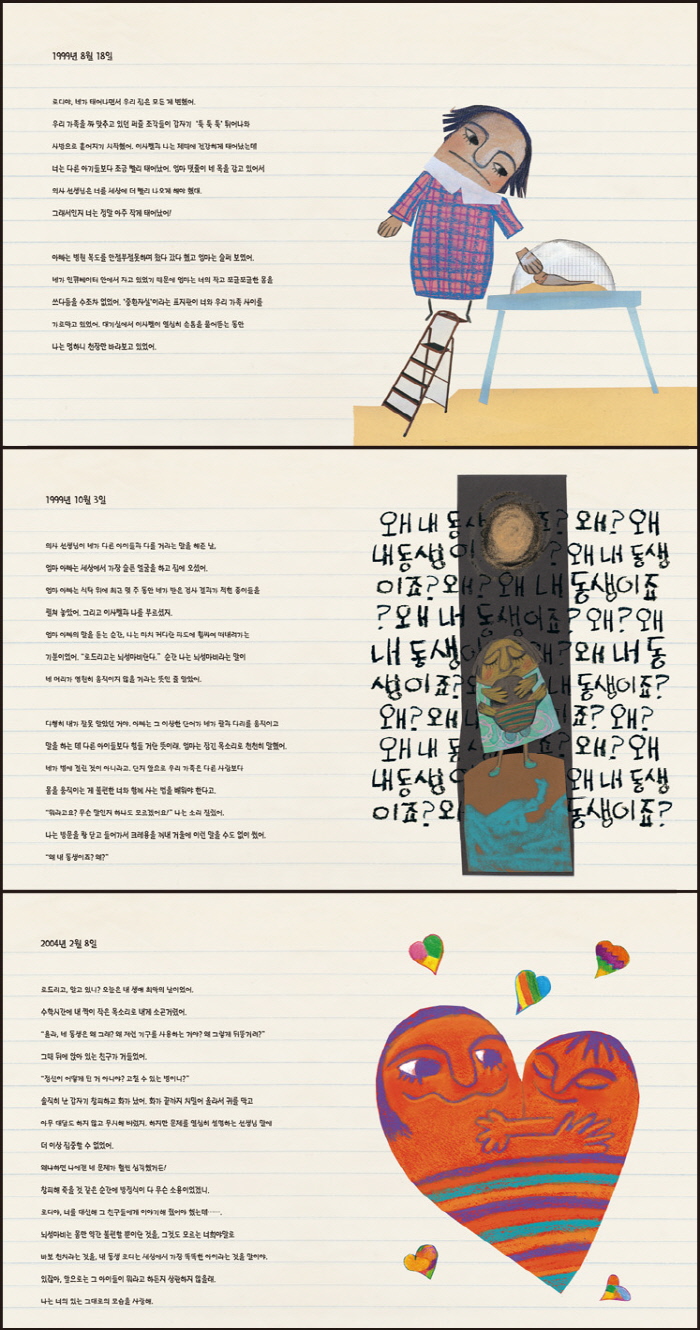 1999년 8월 18일
로디야, 네가 태어나면서 우리 집은 모든 게 변했어.
우리 가족을 꽉 맞추고 있던 퍼즐 조각들이 갑자기 '툭 툭 툭' 튀어나와
사방으로 흩어지기 시작했어. 이사벨과 나는 제때에 건강하게 태어났는데
너는 다른 아기들보다 조금 빨리 태어났어. 엄마 탯줄이 네 목을 감고 있어서
의사 선생님은 너를 세상에 더 빨리 나오게 해야 했대.
그래서인지 너는 정말 아주 작게 태어났어!
아빠는 병원 복도를 안절부절못하며 왔다 갔다 했고 엄마는 슬퍼 보였어.
네가 인큐베이터 안에서 자고 있었기 때문에 엄마는 너의 작고 쪼글쪼글한 몸을
쓰다듬을 수조차 없었어. '중환자실'이라는 표지판이 너와 우리 가족 사이를
가로막고 있었어. 대기실에서 이사벨이 열심히 손톱을 물어뜯는 동안
나는 멍하니 천장만 바라보고 있었어.
1999년 10월 3일
의사 선생님이 네가 다른 아이들과 다를 거라는 말을 해준 날,
엄마 아빠는 세상에서 가장 슬픈 얼굴을 하고 집에 오셨어.
엄마 아빠는 식탁 위에 최근 몇 주 동안 네가 받은 검사 결과가 적힌 종이들을
펼쳐 놓았어. 그리고 이사벨과 나를 부르셨지.
엄마 아빠의 말을 듣는 순간, 나는 마치 커다란 파도에 휩쓸려 떠내려가는
기분이었어. "로드리고는 뇌성마비란다." 순간 나는 뇌성마비라는 말이
네 머리가 영원히 움직이지 않을 거라는 뜻인 줄 알았어.
다행히 내가 잘못 알았던 거야. 아빠는 그 이상한 단어가 네가 팔과 다리를 움직이고
말을 하는 데 다른 아이들보다 힘들 거란 뜻이래. 엄마는 잠긴 목소리로 천천히 말했어.
네가 병에 걸린 것이 아니라고. 단지 앞으로 우리 가족은 다른 사람보다
몸을 움직이는 게 불편한 너와 함께 사는 법을 배워야 한다고.
"뭐라고요? 무슨 말인지 하나도 모르겠어요!" 나는 소리 질렀어.
나는 방문을 쾅 닫고 들어가서 크레용을 꺼내 거울에 이런 말을 수도 없이 썼어.
"왜 내 동생이죠? 왜?"
왜 내 동생 죠? 왜? 왜
내 동생이 ? 왜 내 동생
이죠? 왜? 왜 내 동생이죠
? 왜 내 이죠? 왜? 왜
내 동생 ? 왜 내 동
생이죠? 내 동생이죠?
왜? 왜 내 죠? 왜?
왜 내 동 죠? 왜? 왜
내 동생이 왜 내 동생
이죠? 왜 동생이죠?
2004년 2월 8일
로드리고, 알고 있니? 오늘은 내 생애 최악의 날이었어.
수학시간에 내 짝이 작은 목소리로 내게 소곤거렸어.
"욜라, 네 동생은 왜 그래? 왜 저런 기구를 사용하는 거야? 왜 그렇게 뒤뚱거려?"
그때 뒤에 앉아 있는 친구가 거들었어.
"정신이 어떻게 된 거 아니야? 고칠 수 있는 병이니?"
솔직히 난 갑자기 창피하고 화가 났어. 화가 끝까지 치밀어 올라서 귀를 막고
아무 대답도 하지 않고 무시해 버렸지. 하지만 문제를 열심히 설명하는 선생님 말에
더 이상 집중할 수 없었어.
왜냐하면 나에겐 네 문제가 훨씬 심각했거든!
창피해 죽을 것 같은 순간에 방정식이 다 무슨 소용이었겠니.
로디야, 너를 대신해 그 친구들에게 이야기해 줬어야 했는데…….
뇌성마비는 몸만 약간 불편할 뿐이란 것을, 그것도 모르는 너희야말로
바보 천치라는 것을, 내 동생 로디는 세상에서 가장 똑똑한 아이라는 것을 말이야.
있잖아, 앞으로는 그 아이들이 뭐라고 하든지 상관하지 않을래.
나는 너의 있는 그대로의 모습을 사랑해.